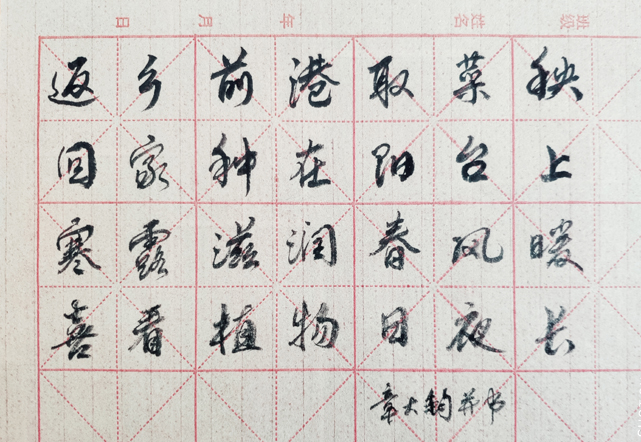 班级 姓名 年 月 日
返乡前港取菜秧
回家种在阳台上
寒露滋润春风暖
喜看植物日夜长
章大 并书